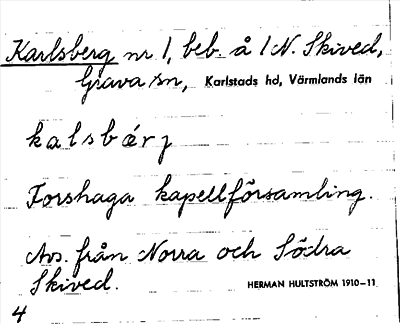 Karlsberg nr 1, beb. å 1 N. Skived,
Grava sn, Karlstads hd, Värmlands län
kalsbærj
Forshaga kapellförsamling.
Avs. från Norra och Södra
Skived.
HERMAN HULTSTRÖM 1910–11
4